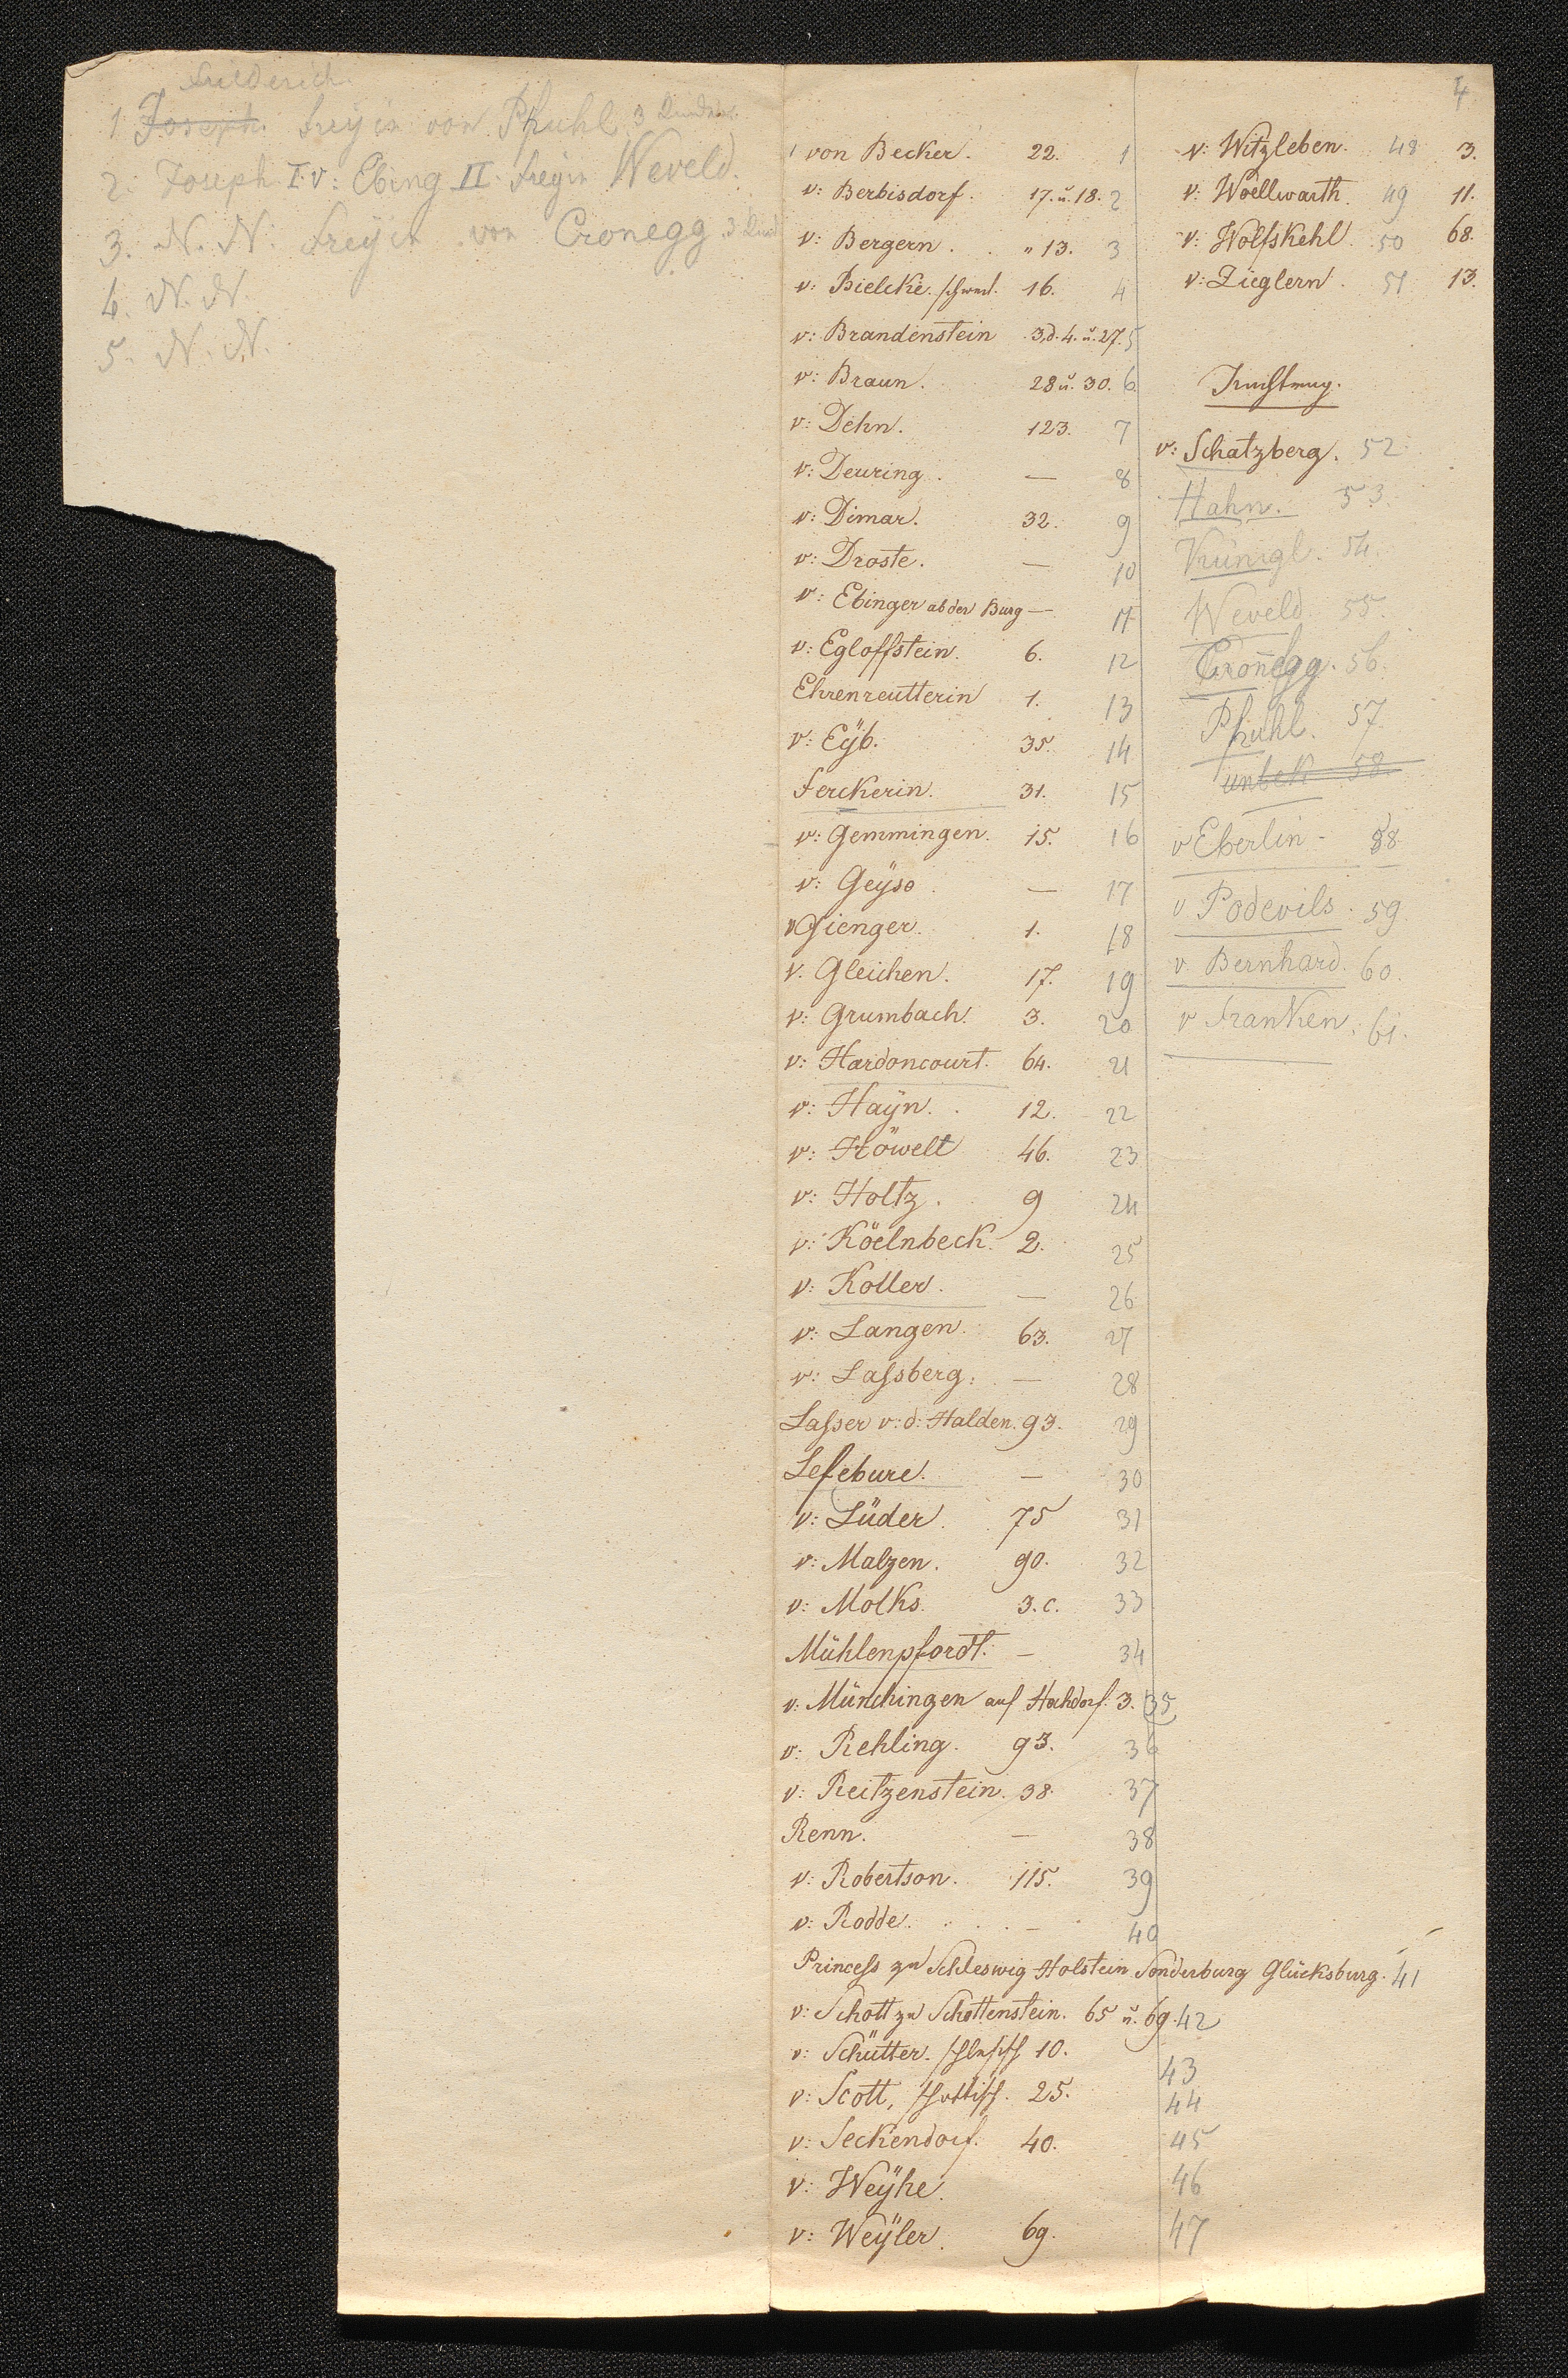 Friederich
1. Joseph. Freyin von Pfuhl 3
2. Joseph I v: Ebing II. Freyin Weveld.
3. N. N. Freyin von Cronegg. 3
4. N. N.
5. N. N.
von Becker. 22. 1
v: Berbisdorf. 17. u. 18. 2
v: Bergern. " 13. 3
v: Bielcke. schwed. 16. 4
v: Brandenstein 3,d. 4. u. 27. 5
v: Braun. 28 u. 30. 6
v: Dehn. 123. 7
v: Deuring. — 8
v: Dimar. 32. 9
v: Droste. — 10
v: Ebinger ab der Burg — 11
v: Egloffstein. 6. 12
Ehrenreutterin 1. 13
v: Eÿb. 35. 14
Ferckerin. 31. 15
v: Gemmingen. 15. 16
v: Geÿso. — 17
v Gienger. 1. 18
v. Gleichen. 17. 19
v: Grumbach. 3. 20
v: Hardoncourt. 64. 21
v: Haÿn. 12. 22
v: Höwelt 46. 23
v: Holtz. 9 24
v: Köelnbeck. 2. 25
v: Koller. — 26
v: Langen. 63. 27
v: Laſsberg. — 28
Laſser v: d: Halden. 93. 29
Lefebure. — 30
v: Lüder. 75 31
v: Malzen. 90. 32
v: Molks. 3. c. 33
Mühlenpfordt. — 34
v: Münchingen auf Hochdorf. 3. 35
v: Rehling. 93. 36
v: Reitzenstein. 38. 37
Renn. — 38
v: Robertson. 115. 39
v: Rodde. — 40
Princeſs zu Schleswig Holstein Sonderburg Glücksburg. 41
v: Schott zu Schottenstein. 65 u. 69. 42
v: Schütter. 10. 43
v: Scott, schottisch. 25. 44
v: Seckendorf. 40. 45
v: Weÿhe. 46
v: Weÿler. 69. 47
4
v: Witzleben. 48 3.
v: Woellwarth. 49 11.
v: Wolfskehl. 50 68.
v: Zieglern. 51 13.
v: Schatzberg. 52
Hahn. 53.
Künigl. 54.
Weveld 55.
Cronegg. 56.
Pfuhl. 57.
unbek 58.
v Eberlin - 58
v Podevils. 59.
v. Bernhard. 60.
v Franken. 61.